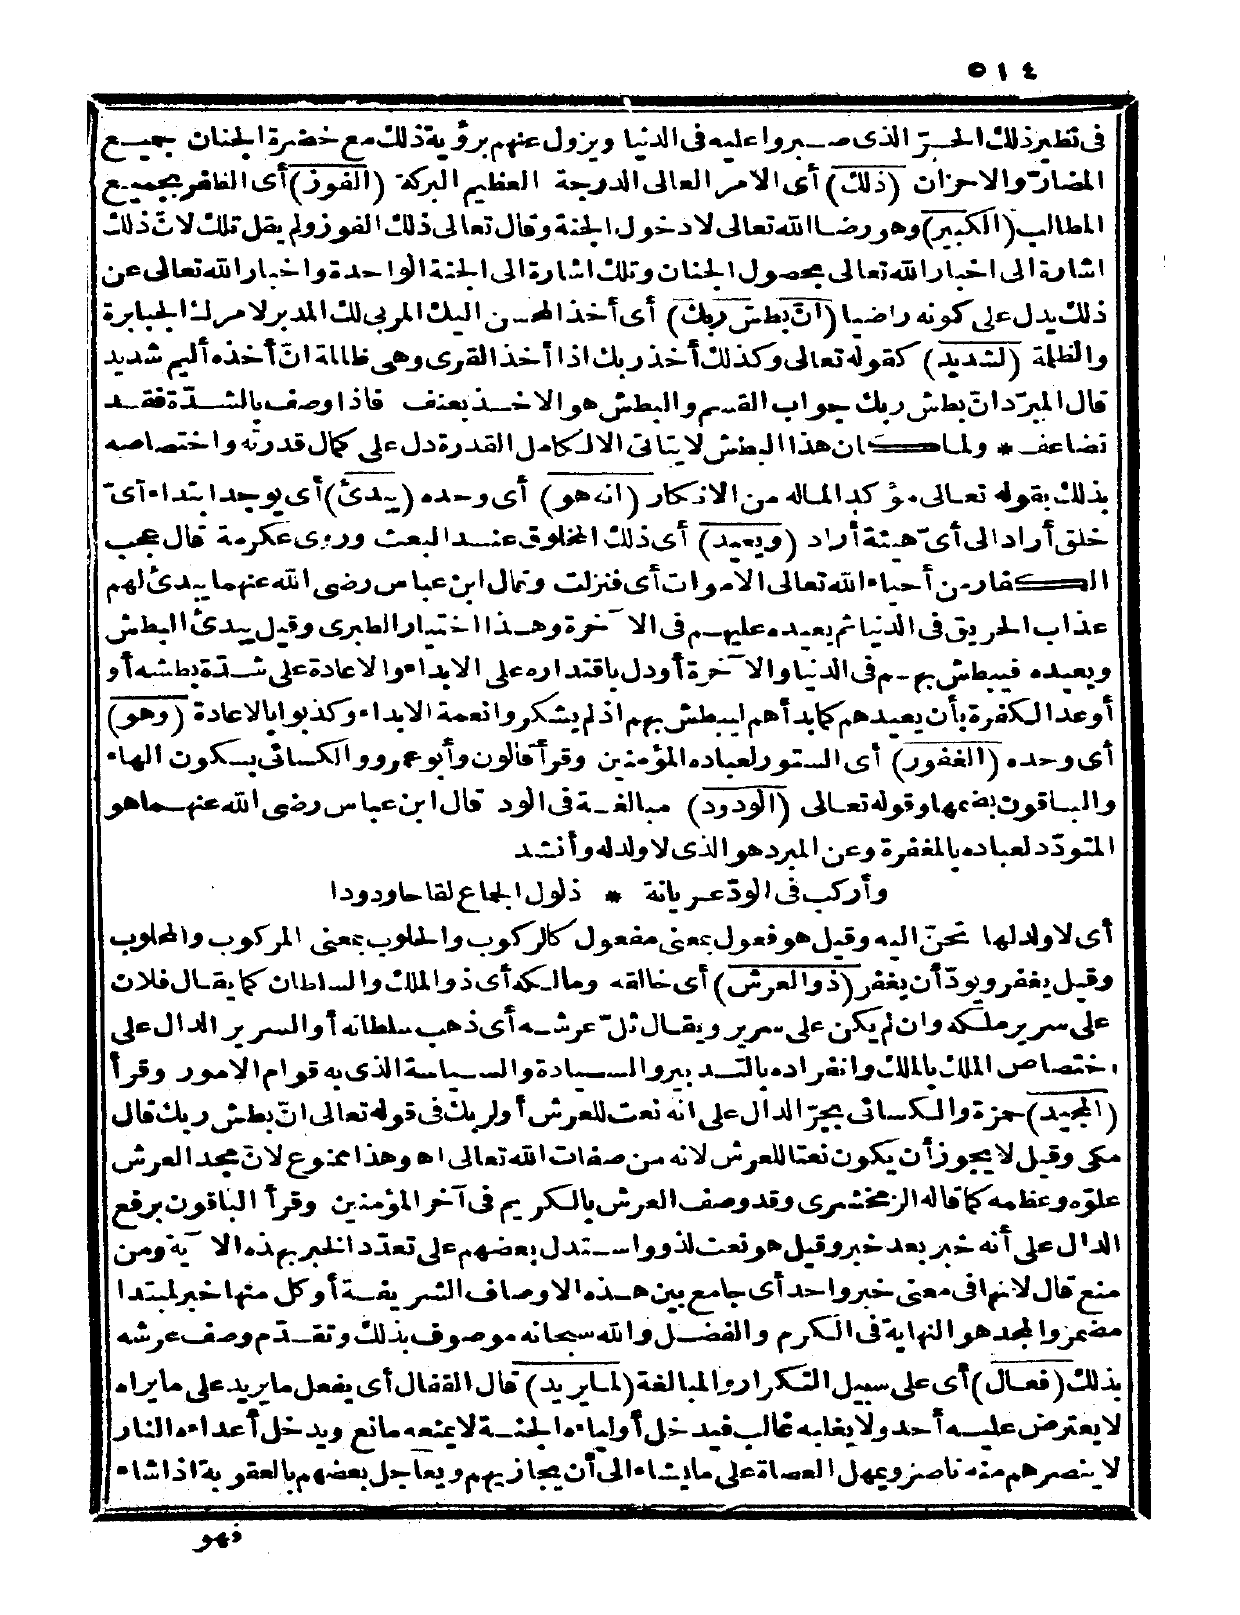 ٥١٤
فى نظير ذلك الحرّ الذى صبروا عليه فى الدنيا ويزول عنهم برؤية ذلك مع خضرة الجنان جميع
المضارّ والاحزان (ذلك) أى الامر العالى الدرجة العظيم البركة (الفوز) أى الظافر بجميع
المطالب (الكبير) وهو رضا الله تعالى لا دخول الجنة وقال تعالى ذلك الفوز ولم يقل تلك لانّ ذلك
اشارة الى اخبار الله تعالى بحصول الجنان وتلك اشارة الى الجنة الواحدة واخبار الله تعالى عن
ذلك يدل على كونه راضيا (انّ بطش ربك) أى أخذ المحسن اليك المربى لك المدبر لامرك الجبابرة
والظلمة (لشديد) كقوله تعالى وكذلك أخذ ربك اذا أخذ القرى وهى ظالمة انّ أخذه أليم شديد
قال المبرّد انّ بطش ربك جواب القسم والبطش هو الاخذ بعنف فاذا وصف بالشدّة فقد
تضاعف * ولما كان هذا البطش لا يتاتى الا لكامل القدرة دل على كمال قدرته واختصاصه
بذلك بقوله تعالى مؤكد الماله من الانكار (انه هو) أى وحده (يبدئ) أى يوجد ابتداء أىّ
خلق أراد الى أىّ هيئة أراد (ويعيد) أى ذلك المخلوق عند البعث وروى عكرمة قال عجب
الكفار من أحياء الله تعالى الاموات أى فنزلت وقال ابن عباس رضى الله عنهما يبدئ لهم
عذاب الحريق فى الدنيا ثم يعيده عليهم فى الآخرة وهذا اختيار الطبرى وقيل يبدئ البطش
ويعيده فيبطش بهم فى الدنيا والآخرة أو دل باقتداره على الابداء والاعادة على شدّة بطشه أو
أوعد الكفرة بأن يعيدهم كما بدأهم ليبطش بهم اذ لم يشكروا نعمة الابداء وكذبوا بالاعادة (وهو)
أى وحده (الغفور) أى الستور لعباده المؤمنين وقرأ قالون وأبو عمرو والكسائى بسكون الهاء
والباقون بضمها وقوله تعالى (الودود) مبالغة فى الود قال ابن عباس رضى الله عنهما هو
المتودّد لعباده بالمغفرة وعن المبرد هو الذى لا ولد له وأنشد
وأركب فى الودّ عريانة * ذلول الجماع لقاحا ودودا
أى لا ولد لها تحنّ اليه وقيل هو فعول بمعنى مفعول كالركوب والحلوب بمعنى المركوب والمحلوب
وقيل يغفر ويودّ أن يغفر (ذو العرش) أى خالقه ومالكه أى ذو الملك والسلطان كما يقال فلان
على سرير ملكه وان لم يكن على سرير ويقال ثلّ عرشه أى ذهب سلطانه أو السرير الدال على
اختصاص الملك بالملك وانفراده بالتدبير والسيادة والسياسة الذى به قوام الامور وقرأ
(المجيد) حمزة والكسائى بجرّ الدال على انه نعت للعرش أو لربك فى قوله تعالى انّ بطش ربك قال
مكى وقيل لا يجوز أن يكون نعتا للعرش لانه من صفات الله تعالى اه وهذا ممنوع لانّ مجد العرش
علوّه وعظمه كما قاله الزمخشرى وقد وصف العرش بالكريم فى آخر المؤمنين وقرأ الباقون برفع
الدال على أنه خبر بعد خبر وقيل هو نعت لذو واستدل بعضهم على تعدّد الخبر بهذه الآية ومن
منع قال لانها فى معنى خبر واحد أى جامع بين هذه الاوصاف الشريفة أو كل منها خبر لمبتدا
مضمر والمجد هو النهاية فى الكرم والفضل والله سبحانه موصوف بذلك وتقدّم وصف عرشه
بذلك (فعال) أى على سبيل التكرار والمبالغة (لما يريد) قال القفال أى يفعل ما يريد على ما يراه
لا يعترض عليه أحد ولا يغلبه غالب فيدخل أولياءه الجنة لا يمنعه مانع ويدخل أعداءه النار
لا ينصرهم منه ناصر ويمهل العصاة على ما يشاء الى أن يجازيهم ويعاجل بعضهم بالعقوبة اذا شاء
فهو